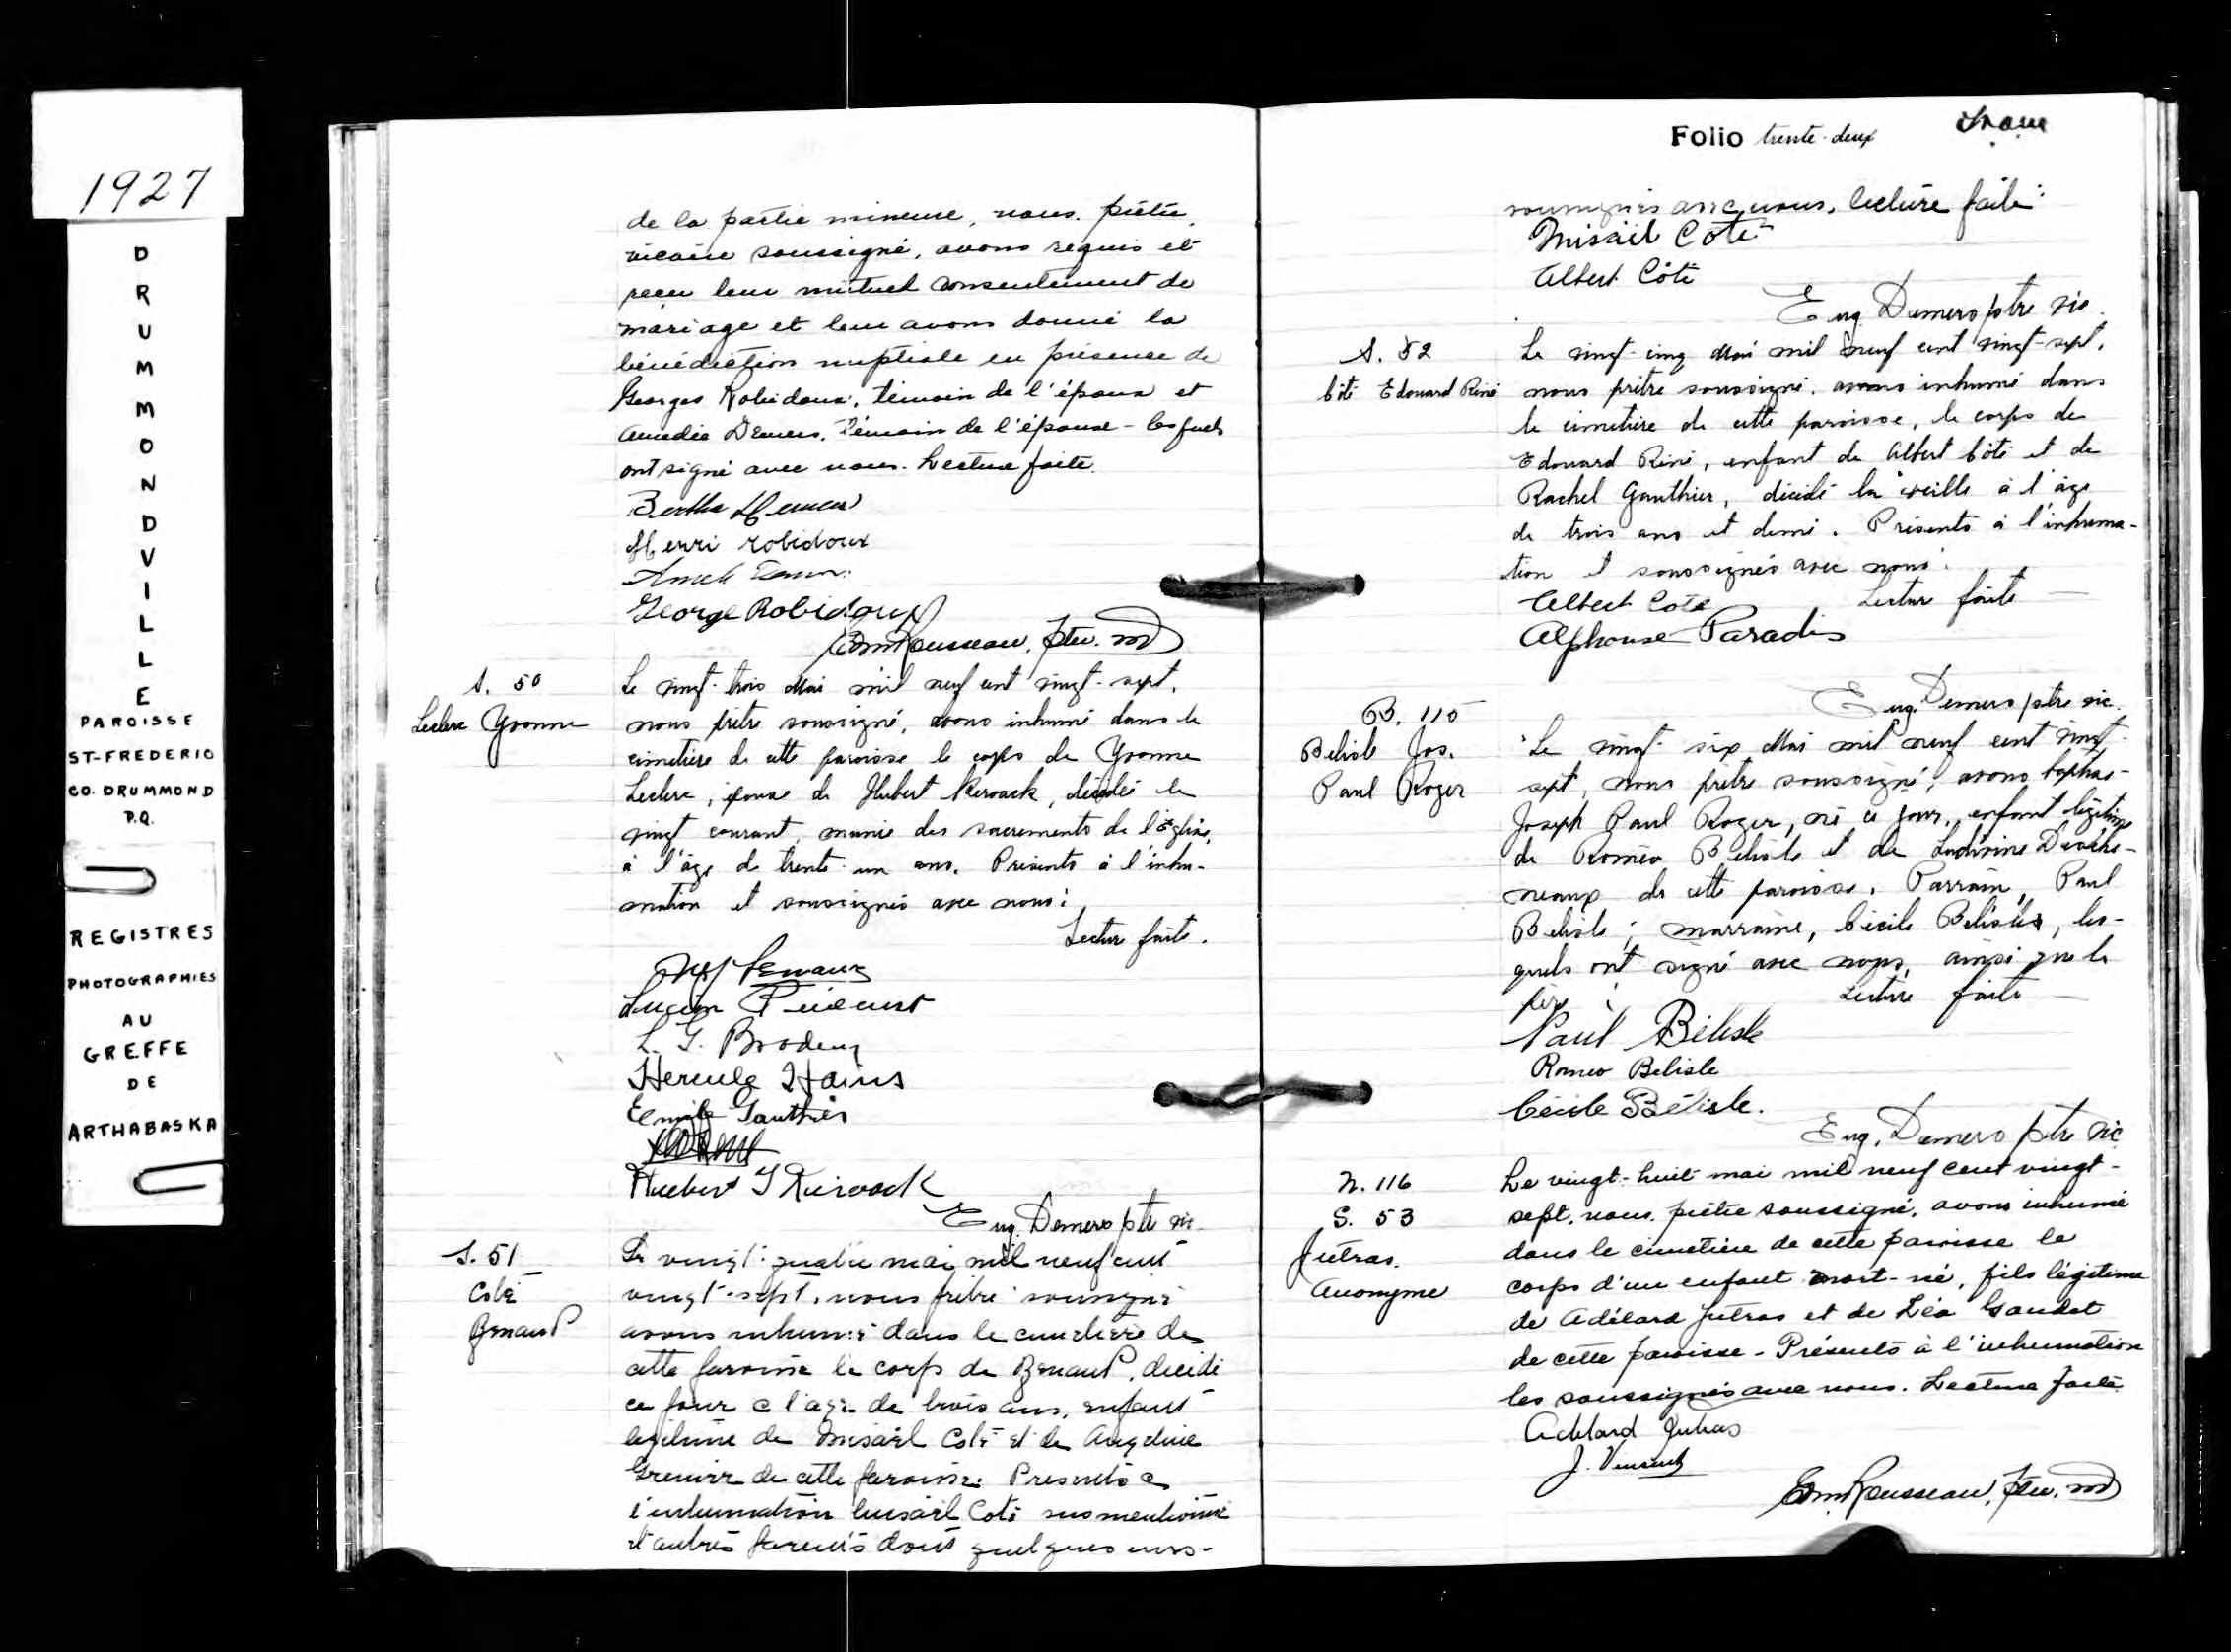 1927
DRUMMONDVILLE
PAROISSE
ST-FREDERIC
CO. DRUMMOND
P.Q.
REGISTRES
PHOTOGRAPHIES
AU
GREFFE
DE
ARTHABASKA
de la partie mineure, nous, prêtre,
vicaire soussigné, avons requis et
reçu leur mutuel consentement de
mariage et leur avons donné la
bénédiction nuptiale en présence de
Georges Robidoux, témoin de l'époux et
Amédée Demers, témoin de l'épouse - lesquels
ont signé avec nous. Lecture faite.
Bertha Demers
Henri Robidoux
George Robidoux
Em. Rousseau, ptre. vic
S. 50
Leclerc Yvonne
Le vingt-trois Mai mil neuf cent vingt-sept,
nous prêtre soussigné, avons inhumé dans le
cimetière de cette paroisse le corps de Yvonne
Leclerc, épouse de Hubert Kerouack, décédée le
vingt courant, munie des sacrements de l'église,
à l'âge de trente-un ans. Présents à l'inhu-
mation et soussignés avec nous:
Lecture faite.
Lucien
L. G. Brodeur
Hercule Hains
Emile Gauthier
Hubert J Kirouack
Eug. Demers ptre vic
S. 51
Coté
Benauf
Le vingt-quatre mai mil neuf cent
vingt-sept, nous prêtre soussigné
avons inhumé dans le cimetière de
cette paroisse le corps de , décédé
ce jour a l'age de trois ans, enfant
legitime de Misaël Coté et de Angeline
Grenier de cette paroisse. Presents a
l'inhumation Misaël Coté susmentionné
et autres parents dont quelques uns-
Folio trente-deux
soussignés avec nous, lecture faite:
Misaël Côté
Albert Côté
Eug. Demers ptre vic.
S. 52
Côté Edouard Réné
Le vingt-cinq Mai mil neuf cent vingt-sept,
nous prêtre soussigné, avons inhumé dans
le cimetière de cette paroisse, le corps de
Edouard Réné, enfant de Albert Côté et de
Rachel Gauthier, décédé la veille à l'âge
de trois ans et demi. Présents à l'inhuma-
tion et soussignés avec nous:
Lecture faite
Albert Coté
Alphonse Paradis
Eug. Demers ptre vic.
B. 115
Belisle Jos.
Paul Roger
Le vingt-six Mai mil neuf cent vingt-
sept, nous prêtre soussigné, avons baptisé
Joseph Paul Roger, né ce jour, enfant légitime
de Roméo Belisle et de Ludivine Desche-
neaux de cette paroisse. Parrain, Paul
Belisle; marraine, Cécile Belisle, les-
quels ont signé avec nous, ainsi que le
père. Lecture faite
Paul Bélisle
Romeo Belisle
Cécile Bélisle.
Eug. Demers ptre vic
N. 116
S. 53
Jutras.
Anonyme
Le vingt-huit mai mil neuf cent vingt-
sept, nous, prêtre soussigné, avons inhumé
dans le cimetière de cette paroisse le
corps d'un enfant mort-né, fils légitime
de Adélard Jutras et de Léa Gaudet
de cette paroisse - Présents à l'inhumation
les soussignés avec nous. Lecture faite
Adelard Jutras
J. Vincent
Em. Rousseau, ptre. vic